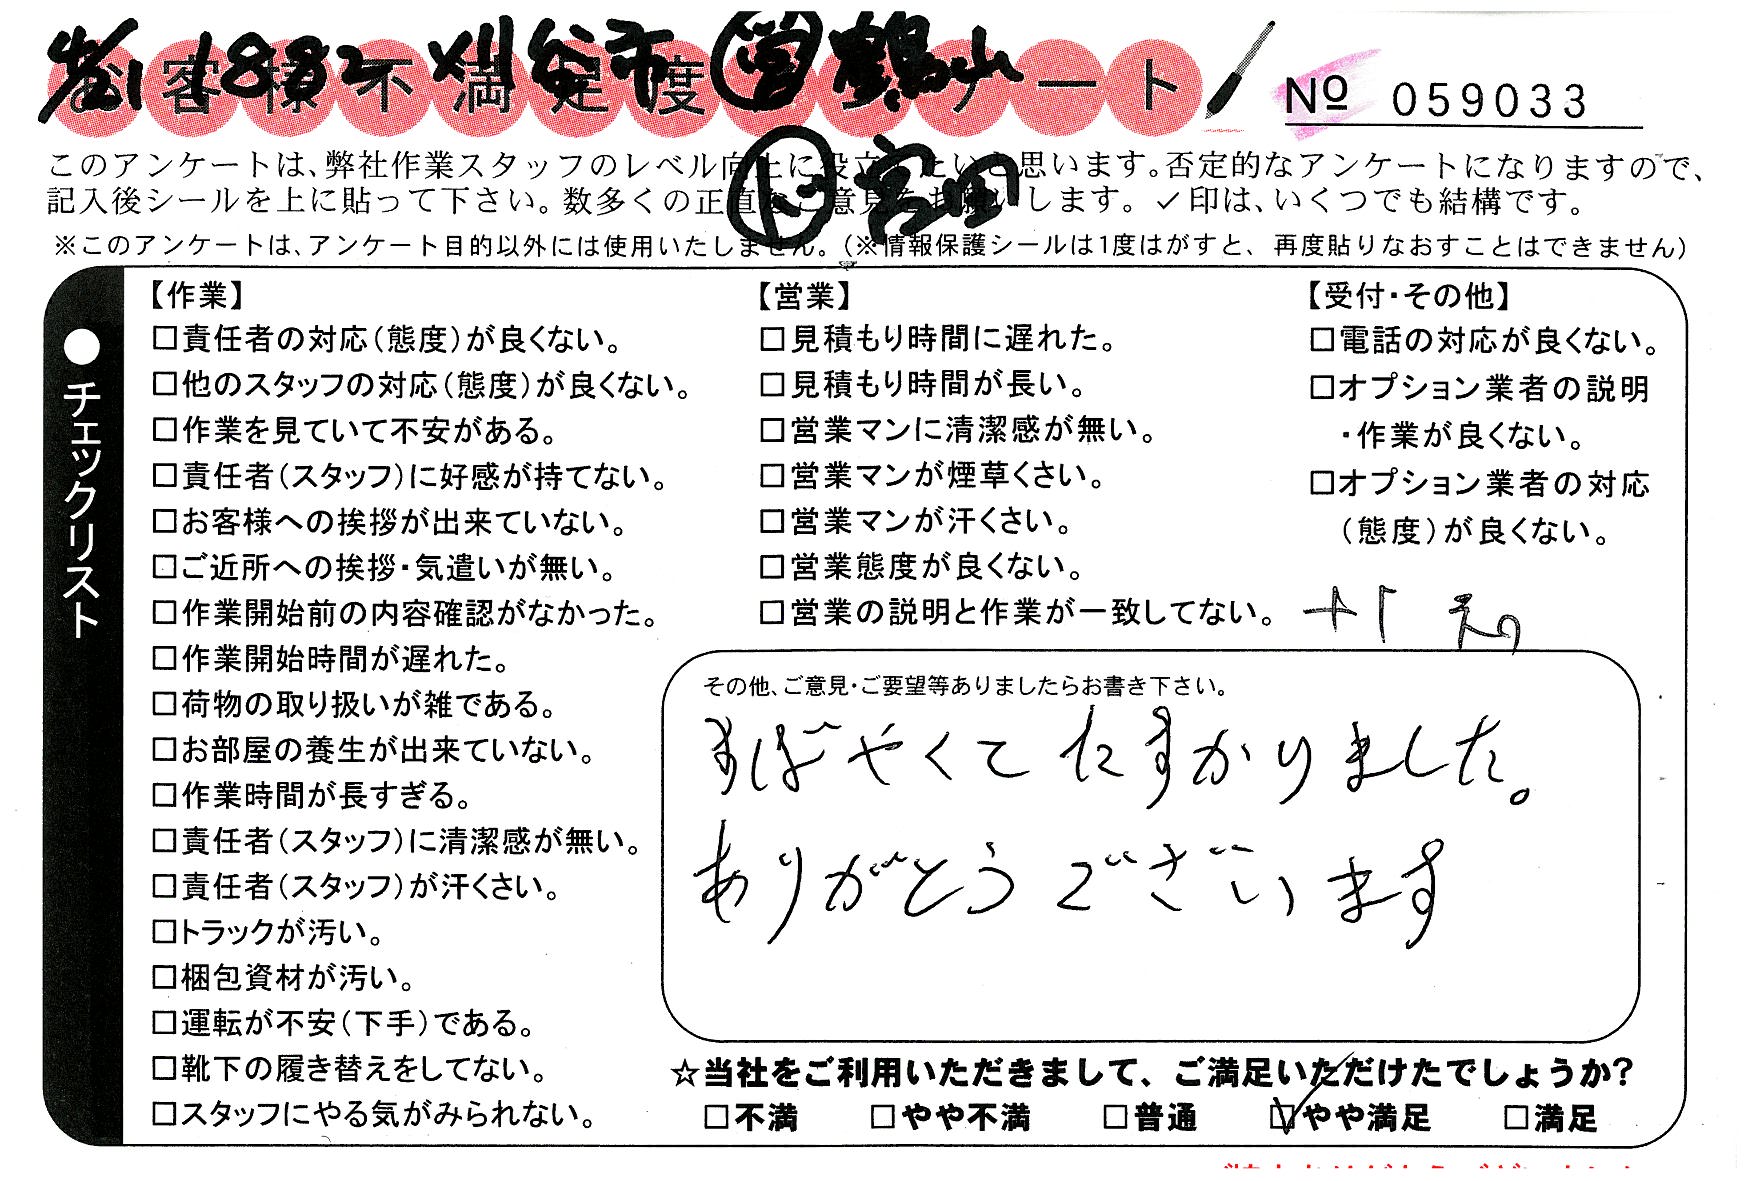 お客様不満足度アンケート
4/21 1882 刈谷市 営 鶴山
№ 059033
ド 宮田
このアンケートは、弊社作業スタッフのレベル向上に役立てたいと思います。否定的なアンケートになりますので、
記入後シールを上に貼って下さい。数多くの正直なご意見をお願いします。✓印は、いくつでも結構です。
※このアンケートは、アンケート目的以外には使用いたしません。(※情報保護シールは1度はがすと、再度貼りなおすことはできません)
●チェックリスト
【作業】
□責任者の対応(態度)が良くない。
□他のスタッフの対応(態度)が良くない。
□作業を見ていて不安がある。
□責任者(スタッフ)に好感が持てない。
□お客様への挨拶が出来ていない。
□ご近所への挨拶・気遣いが無い。
□作業開始前の内容確認がなかった。
□作業開始時間が遅れた。
□荷物の取り扱いが雑である。
□お部屋の養生が出来ていない。
□作業時間が長すぎる。
□責任者(スタッフ)に清潔感が無い。
□責任者(スタッフ)が汗くさい。
□トラックが汚い。
□梱包資材が汚い。
□運転が不安(下手)である。
□靴下の履き替えをしてない。
□スタッフにやる気がみられない。
【営業】
□見積もり時間に遅れた。
□見積もり時間が長い。
□営業マンに清潔感が無い。
□営業マンが煙草くさい。
□営業マンが汗くさい。
□営業態度が良くない。
□営業の説明と作業が一致してない。
【受付・その他】
□電話の対応が良くない。
□オプション業者の説明
・作業が良くない。
□オプション業者の対応
(態度)が良くない。
その他、ご意見・ご要望等ありましたらお書き下さい。
すばやくてたすかりました。
ありがとうございます
☆当社をご利用いただきまして、ご満足いただけたでしょうか?
□不満 □やや不満 □普通 ☑やや満足 □満足